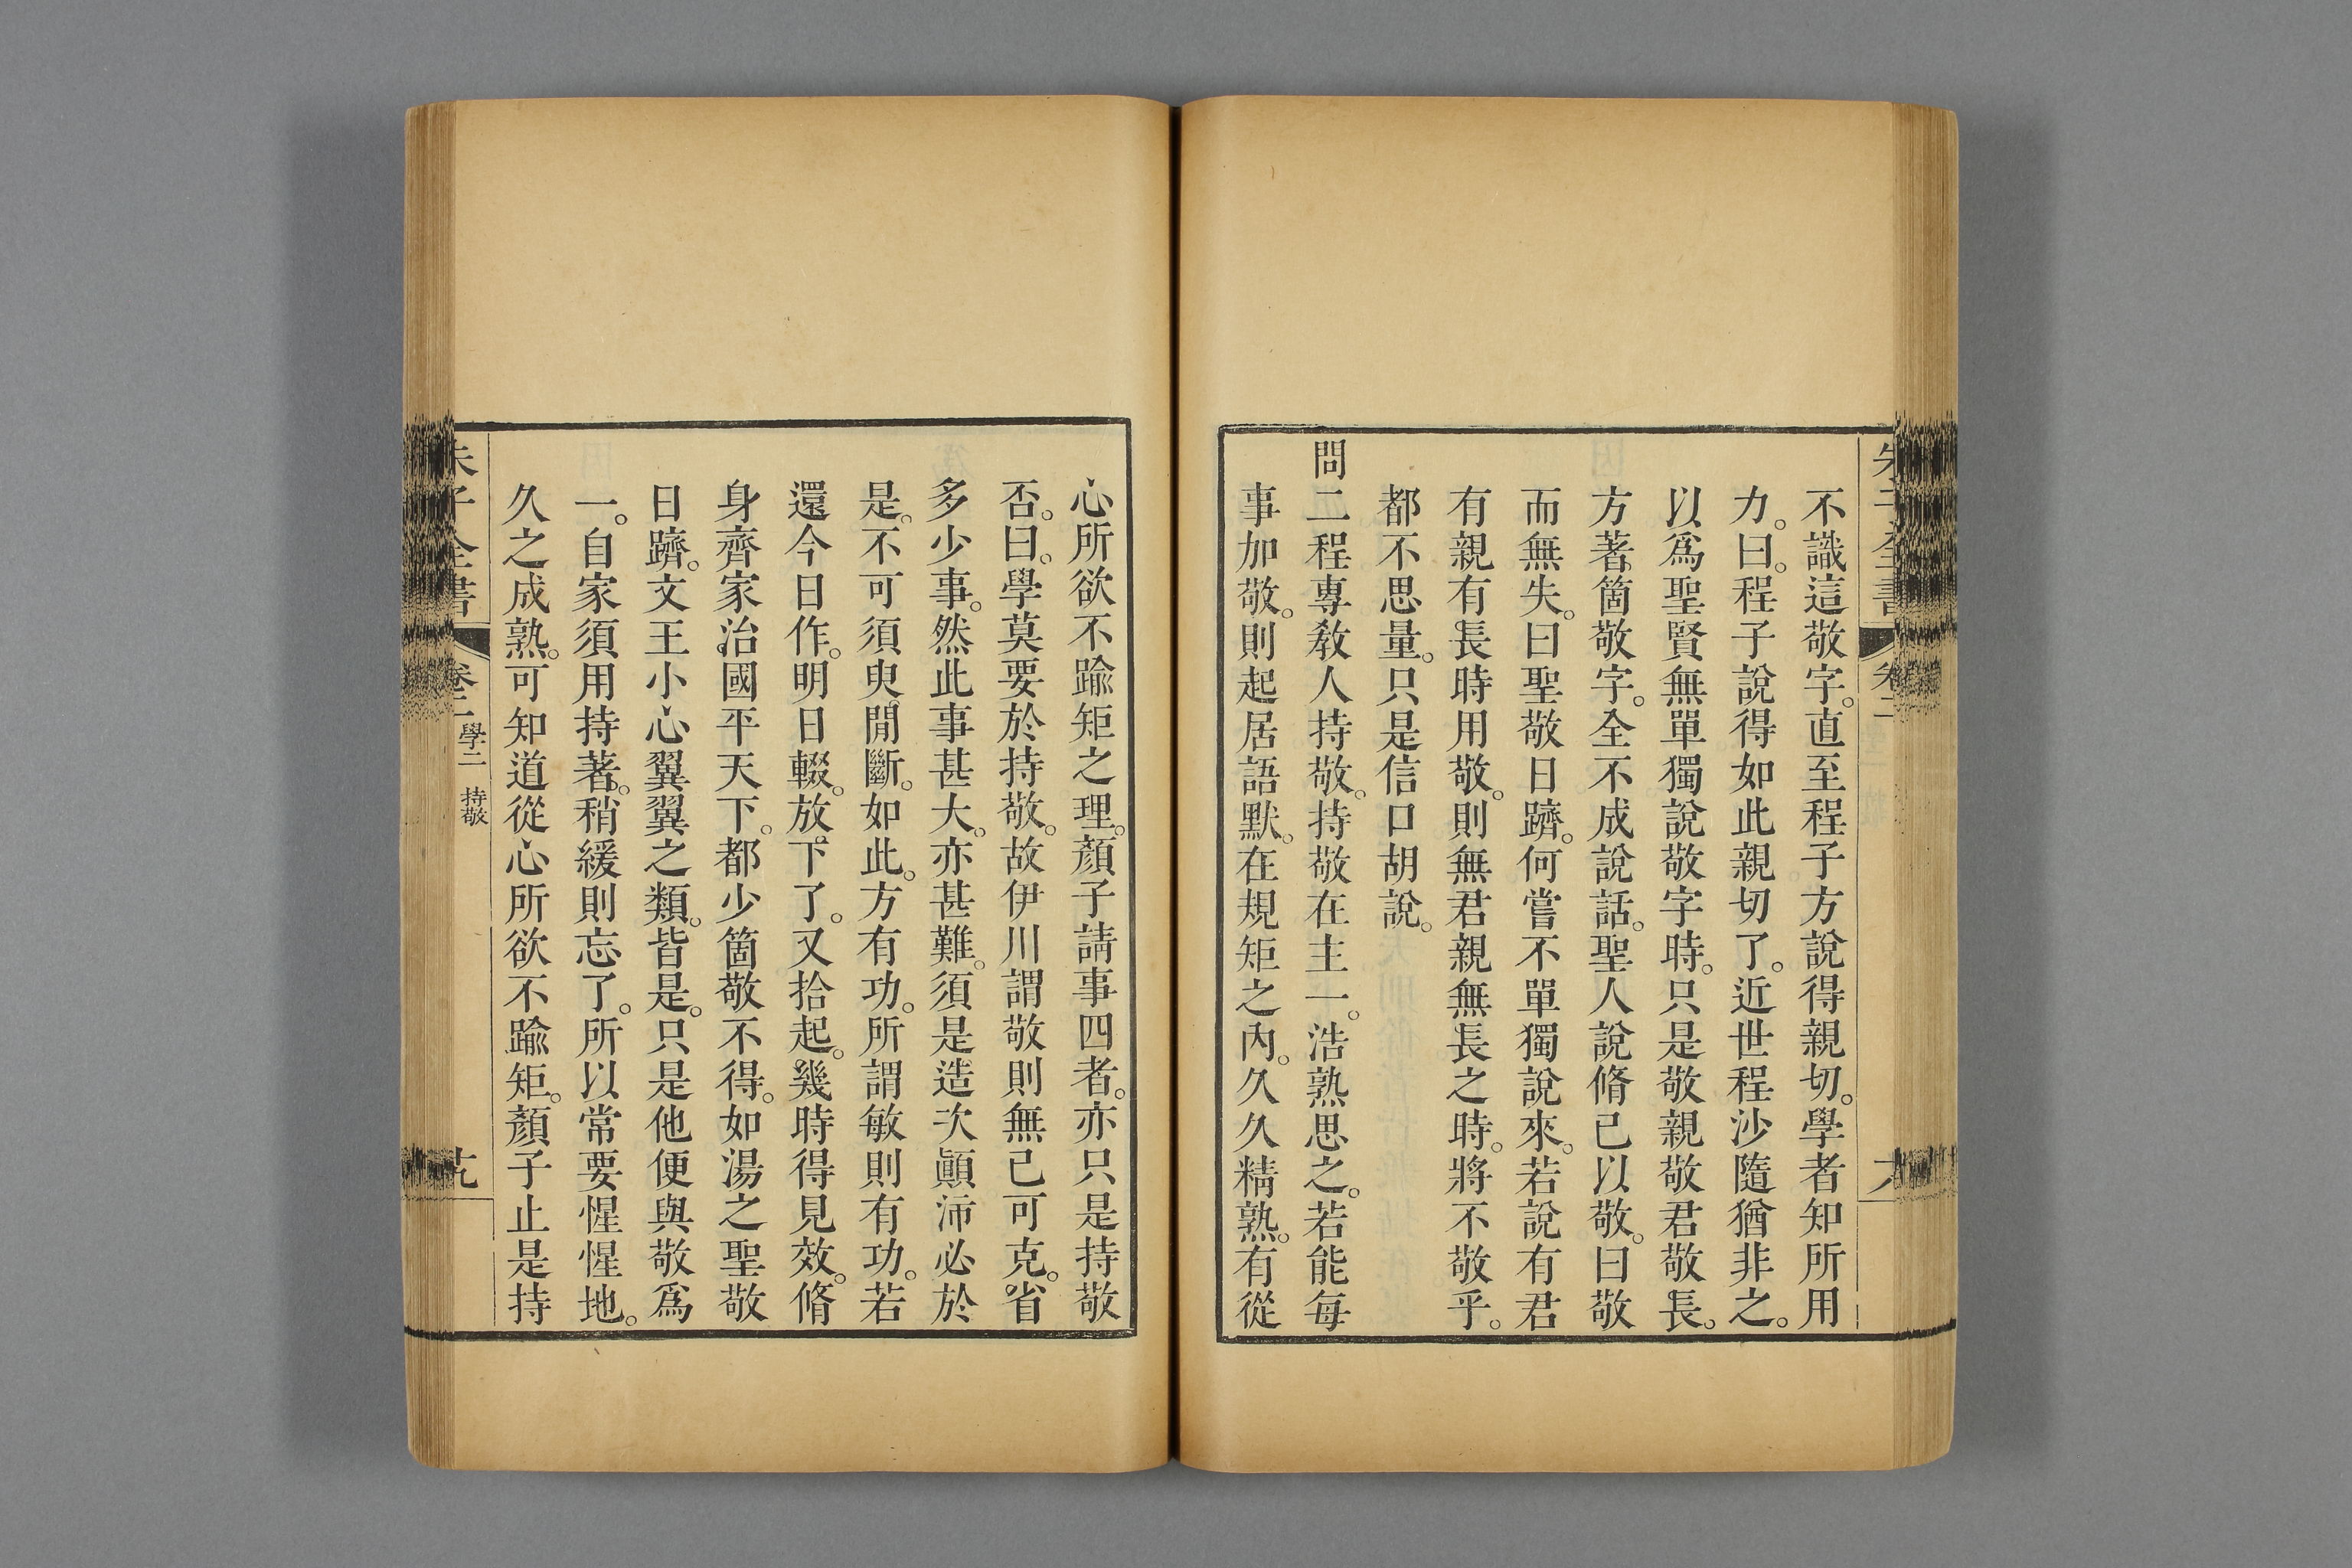 不識這敬字。直至程子方說得親切。學者知所用
力。曰。程子說得如此親切了。近世程沙隨猶非之。
以爲聖賢無單獨說敬字時。只是敬親敬君敬長。
方著箇敬字。全不成說話。聖人說脩己以敬。曰敬
而無失。曰聖敬日躋。何嘗不單獨說來。若說有君
有親有長時用敬。則無君親無長之時。將不敬乎。
都不思量。只是信口胡說。
問二程專教人持敬。持敬在主一。浩熟思之。若能每
事加敬。則起居語默。在規矩之內。久久精熟。有從
心所欲不踰矩之理。顏子請事四者。亦只是持敬
否。曰。學莫要於持敬。故伊川謂敬則無己可克。省
多少事。然此事甚大。亦甚難。須是造次顚沛必於
是。不可須臾閒斷。如此。方有功。所謂敏則有功。若
還今日作。明日輟。放下了。又拾起。幾時得見效。脩
身齊家治國平天下。都少箇敬不得。如湯之聖敬
日躋。文王小心翼翼之類。皆是。只是他便與敬爲
一。自家須用持著。稍緩則忘了。所以常要惺惺地。
久之成熟。可知道從心所欲不踰矩。顏子止是持
朱子全書
學二
持敬